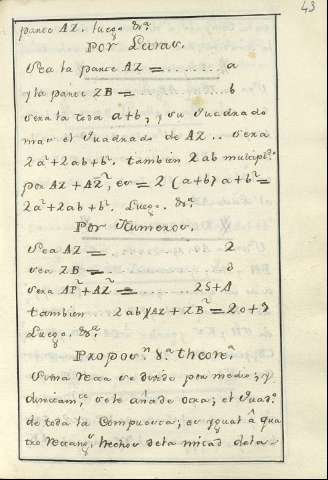 43
parte AZ. luego &ra.
Por Letras.
Sea la parte AZ = ........ a
y la parte ZB = b
sera la toda a+b, y su Quadrado
mas el Quadrado de AZ .. sera
2a²+2ab+b². tambien 2ab multipl.
por AZ + AZ², es = 2 (a+b) a+b² =
2a²+2ab+b². Luego. &ra.
Por Numeros.
Sea AZ = 2
sea ZB = 3
sera AB²+AZ² = 25+4
tambien 2ab AZ + ZB² = 20+9
Luego. &ra.
Propos.n 8.a theore.a
Si una recta se divide por medio; y
directam.te se le añade otra; el Quad.o
de toda la Compuesta; es ygual â qua
tro Rectang.s hechos dela mitad dela